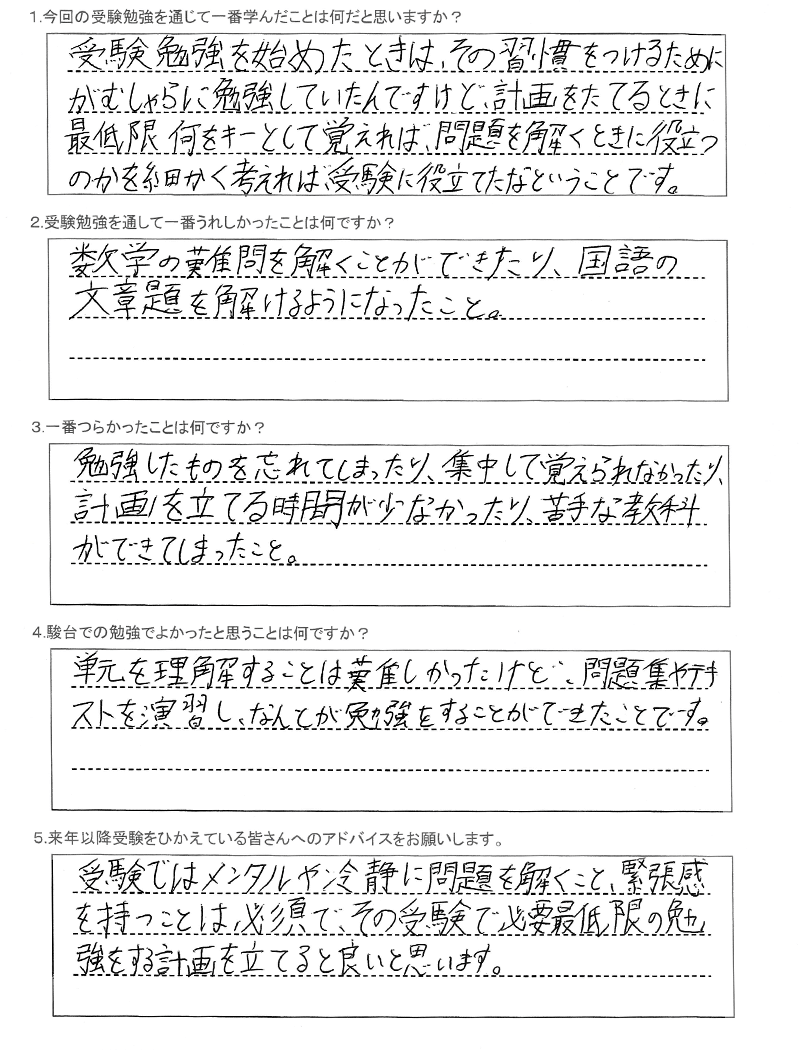 1.今回の受験勉強を通じて一番学んだことは何だと思いますか？
受験勉強を始めたときは、その習慣をつけるために
がむしゃらに勉強していたんですけど、計画をたてるときに
最低限何をキーとして覚えれば、問題を解くときに役立つ
のかを細かく考えれば、受験に役立てたなということです。
2.受験勉強を通して一番うれしかったことは何ですか？
数学の難問を解くことができたり、国語の
文章題を解けるようになったこと。
3.一番つらかったことは何ですか？
勉強したものを忘れてしまったり、集中して覚えられなかったり、
計画を立てる時間が少なかったり、苦手な教科
ができてしまったこと。
4.駿台での勉強でよかったと思うことは何ですか？
単元を理解することは難しかったけど、問題集やテキ
ストを演習し、なんとか勉強をすることができたことです。
5.来年以降受験をひかえている皆さんへのアドバイスをお願いします。
受験ではメンタルや冷静に問題を解くこと、緊張感
を持つことは、必須で、その受験で必要最低限の勉
強をする計画を立てると良いと思います。